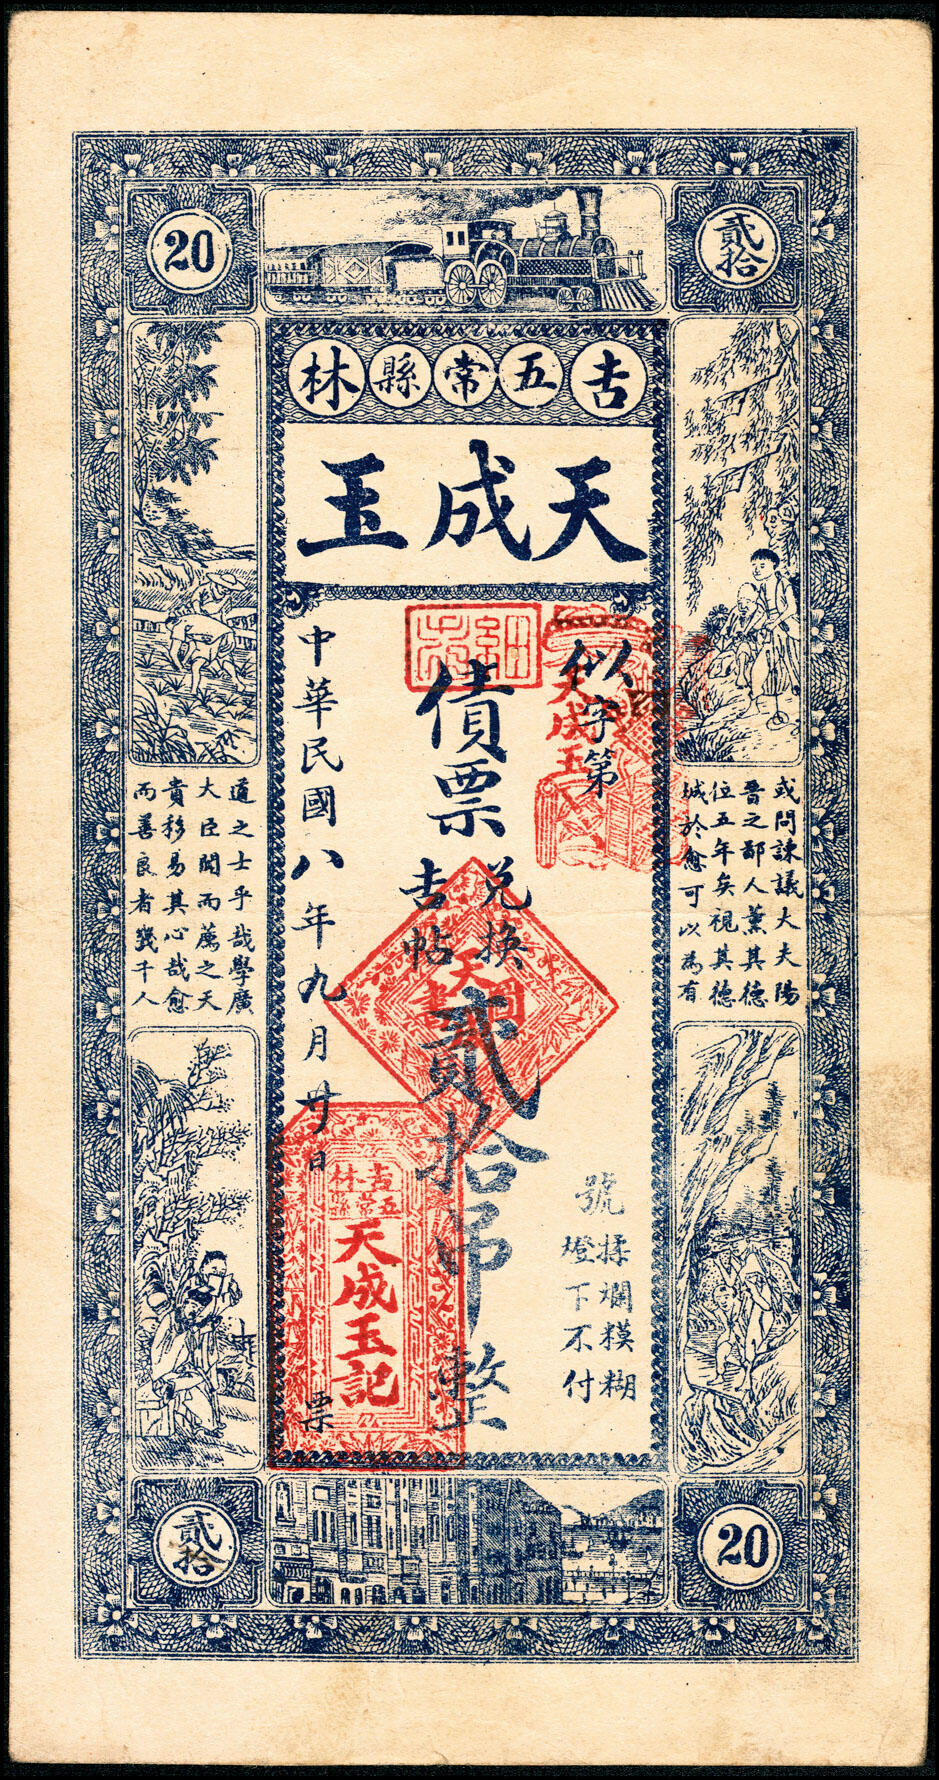 20
貳拾
吉五常縣林
天成玉
或問諫議大夫陽
晉之鄙人薰其德
位五年矣視其德
城於愈可以為有
似字第
號
揉爛糢糊
燈下不付
債票
兌換
吉帖
貳拾吊整
中華民國八年九月廿日
票
道之士乎哉學廣
大臣聞而薦之天
貴移易其心哉愈
而善良者幾千人
天成玉
圖書
吉林
五常縣
天成玉記
貳拾
20